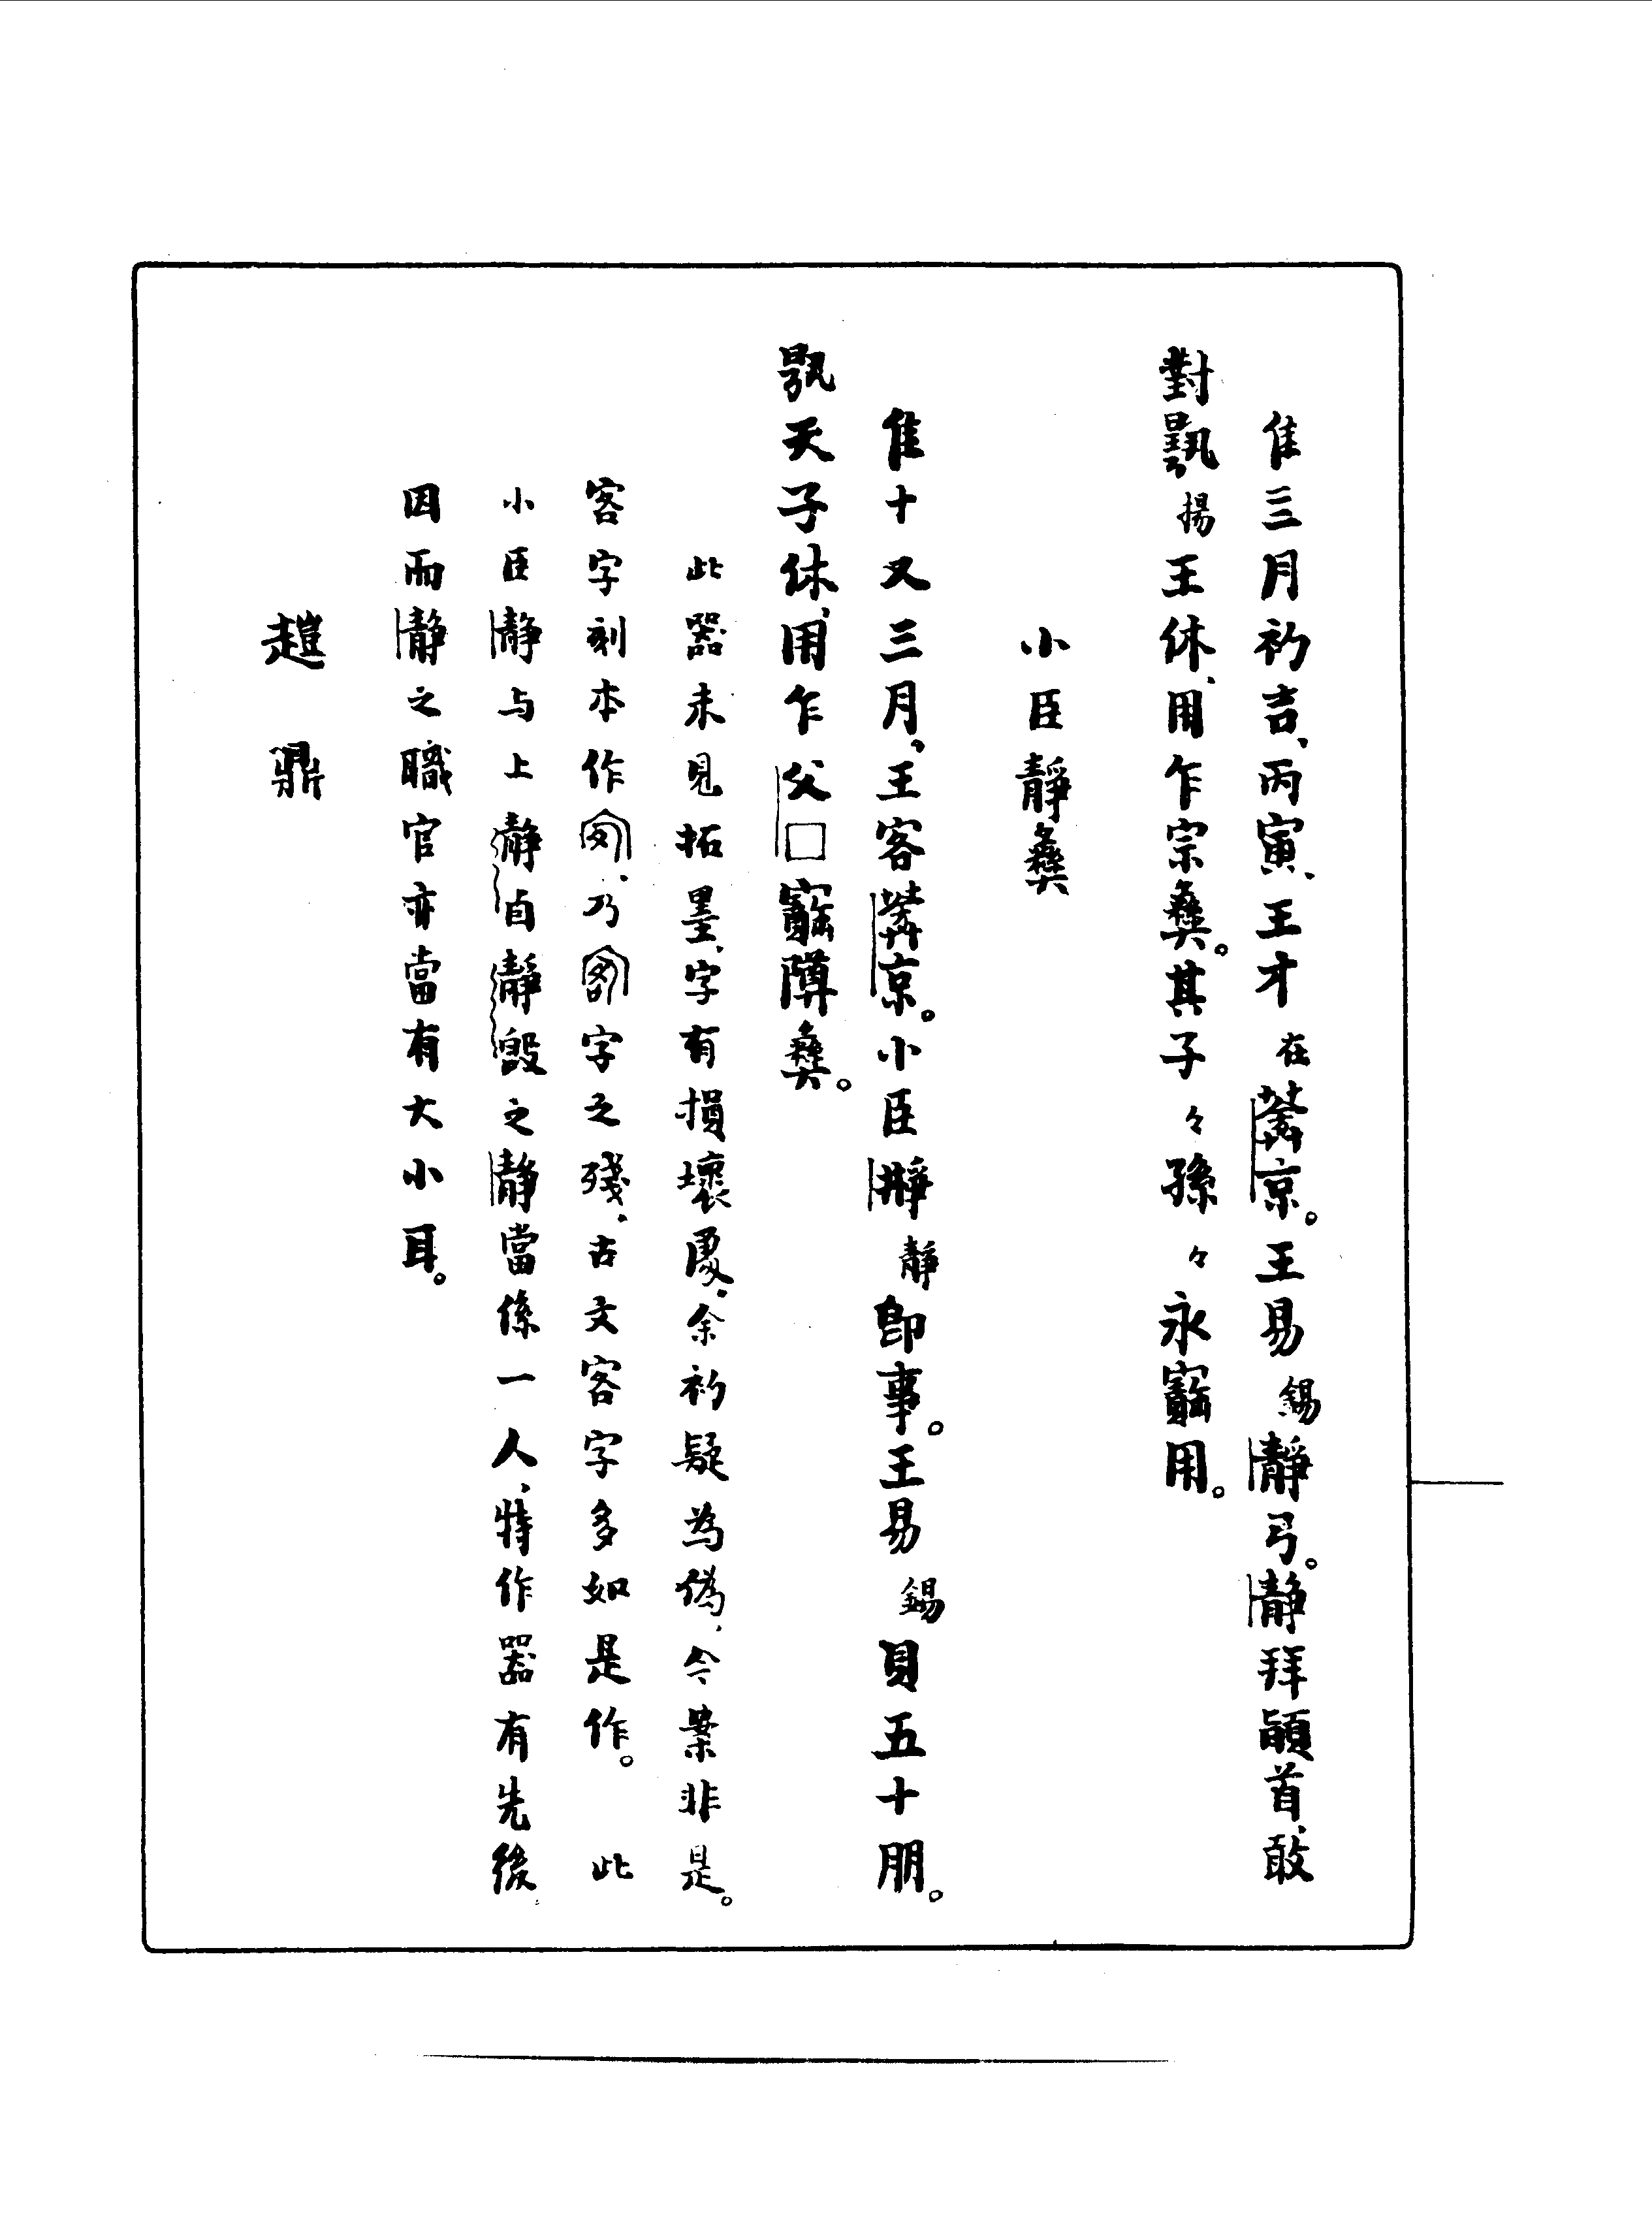 隹三月初吉、丙寅、王才在㯱京。王易錫靜弓。靜拜䭫首、敢
對揚王休、用乍宗彝。其子〻孫〻永寶用。
小臣靜彝
隹十又三月、王客㯱京。小臣靜即事。王易錫貝五十朋。
天子休、用乍父□寶障彝。
此器未見拓墨、字有損壞處、余初疑為偽、今案非是。
客字刻本作、乃字之殘、古文客字多如是作。此
小臣靜与上靜卣靜𣪘之靜當係一人、特作器有先後
因而靜之職官亦當有大小耳。
趞鼎